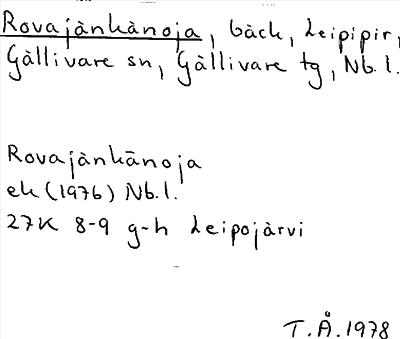 Rovajänkänoja, bäck, Leipipir,
Gällivare sn, Gällivare tg, Nb.l.
Rovajänkänoja
ek (1976) Nb.l.
27K 8-9 g-h Leipojärvi
T.Å.1978